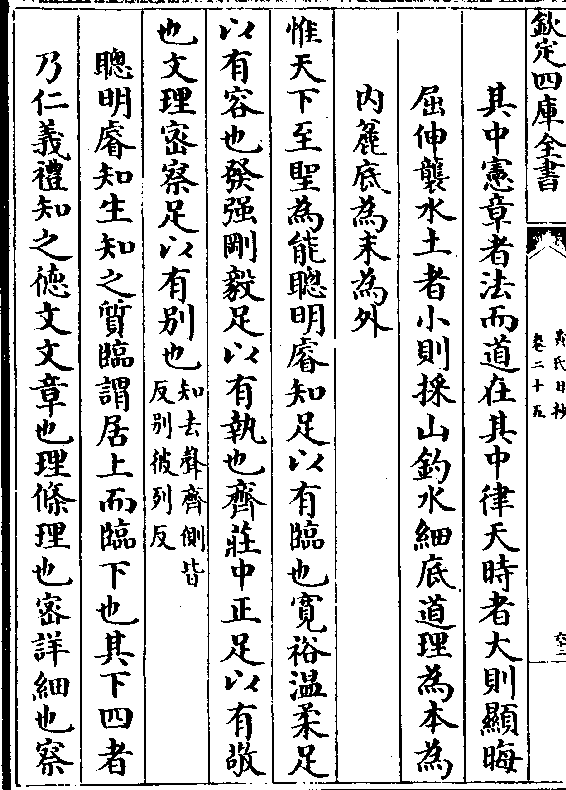 欽定四庫全書
卷二十五
其中憲章者法而道在其中律天時者大則顯晦
屈伸襲水土者小則採山釣水細底道理為本為
內麄底為末為外
惟天下至聖為能聰明睿知足以有臨也寛裕温柔足
以有容也發强剛毅足以有執也齊莊中正足以有敬
也文理密察足以有别也知去聲齊側皆
反别彼列反
聰明睿知生知之質臨謂居上而臨下也其下四者
乃仁義禮知之德文文章也理條理也密詳細也察